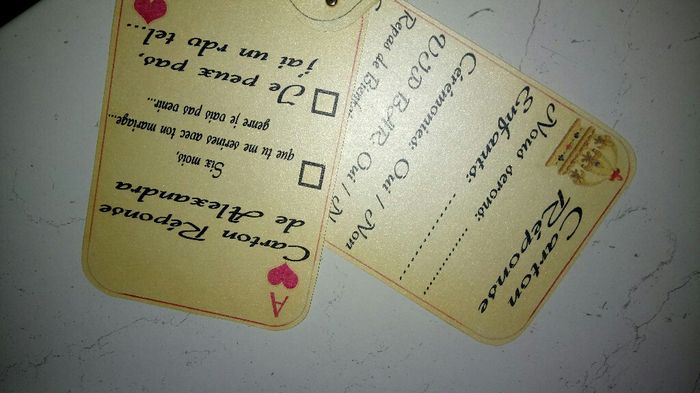 A
Carton Réponse
de Alexandra
Six mois,
que tu me serines avec ton mariage...
genre je vais pas venir...
Je peux pas,
j'ai un rdv tel...
Carton
Réponse
Nous serons: ..........
Enfants: ..........
Cérémonies: Oui / Non
VIP BAR: Oui / N
Repas de Bienv